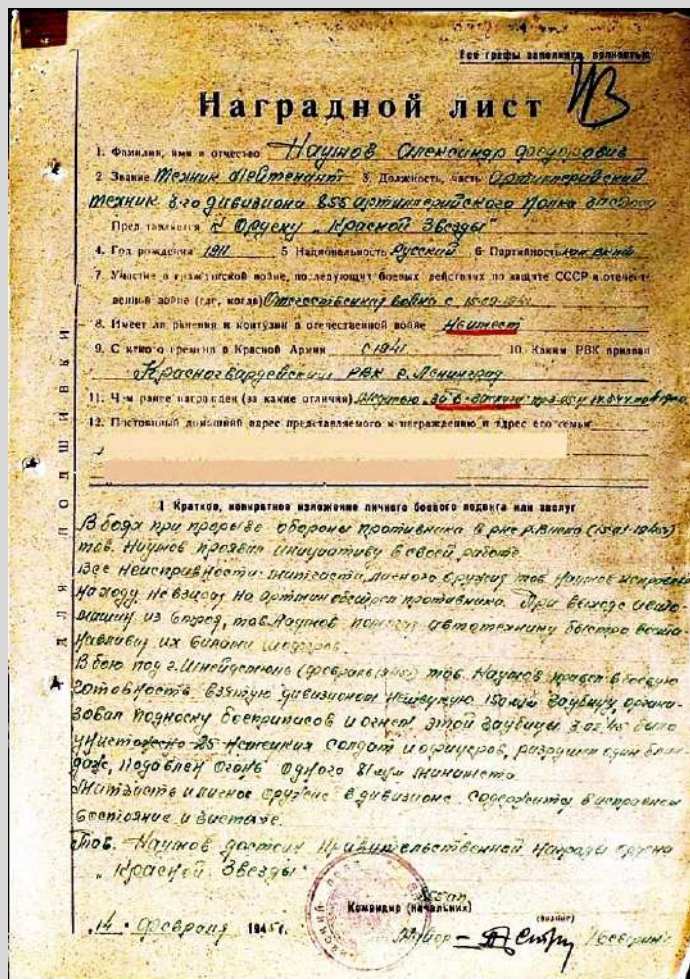 Все графы заполнять полностью
Наградной лист
1. Фамилия, имя и отчество Наумов Александр Федорович
2 Звание Техник Лейтенант 3. Должность, часть Артиллерийский
техник 3-го дивизиона 855 артиллерийского полка
Представляется К Ордену „Красной Звезды"
4. Год рождения 1911 5 Национальность Русский 6 Партийность
7 Участие в гражданской войне, последующих боевых действиях по защите СССР и отечест-
венной войне (где, когда) Отечественная война с
8. Имеет ли ранения и контузии в отечественной войне Не имеет
9. С какого времени в Красной Армии с 1941 10. Каким РВК призван
Красногвардейским РВК г. Ленинград
11. Чем ранее награжден (за какие отличия) Медалью „За б-заслуги"
12. Постоянный домашний адрес представляемого к награждению и адрес его семьи
ДЛЯ ПОДШИВКИ
I Краткое, конкретное изложение личного боевого подвига или заслуг
В боях при прорыве обороны противника в р-не р. Висла
тов. Наумов проявил инициативу в своей работе.
Все неисправности матчасти, личного оружия тов. Наумов исправлял
на ходу, не взирая на артмин обстрел противника. При выходе авто-
машин из строя, тов. Наумов помогал автотехнику быстро восста-
навливать их силами шоферов.
В бою под г. Шнейдемюль (февраль 1945г) тов. Наумов привел в боевую
готовность взятую дивизионом немецкую 150 м/м гаубицу, органи-
зовал подноску боеприпасов и огнем этой гаубицы было
уничтожено 25 немецких солдат и офицеров, разрушен один блин-
даж, подавлен огонь одного 81 м/м миномета.
Матчасть и личное оружие в дивизионе содержится в исправном
состояние и чистоте.
Тов. Наумов достоин Правительственной награды ордена
„Красной Звезды"
Командир (начальник)
(звание)
„14" февраля 1945 г.
Майор